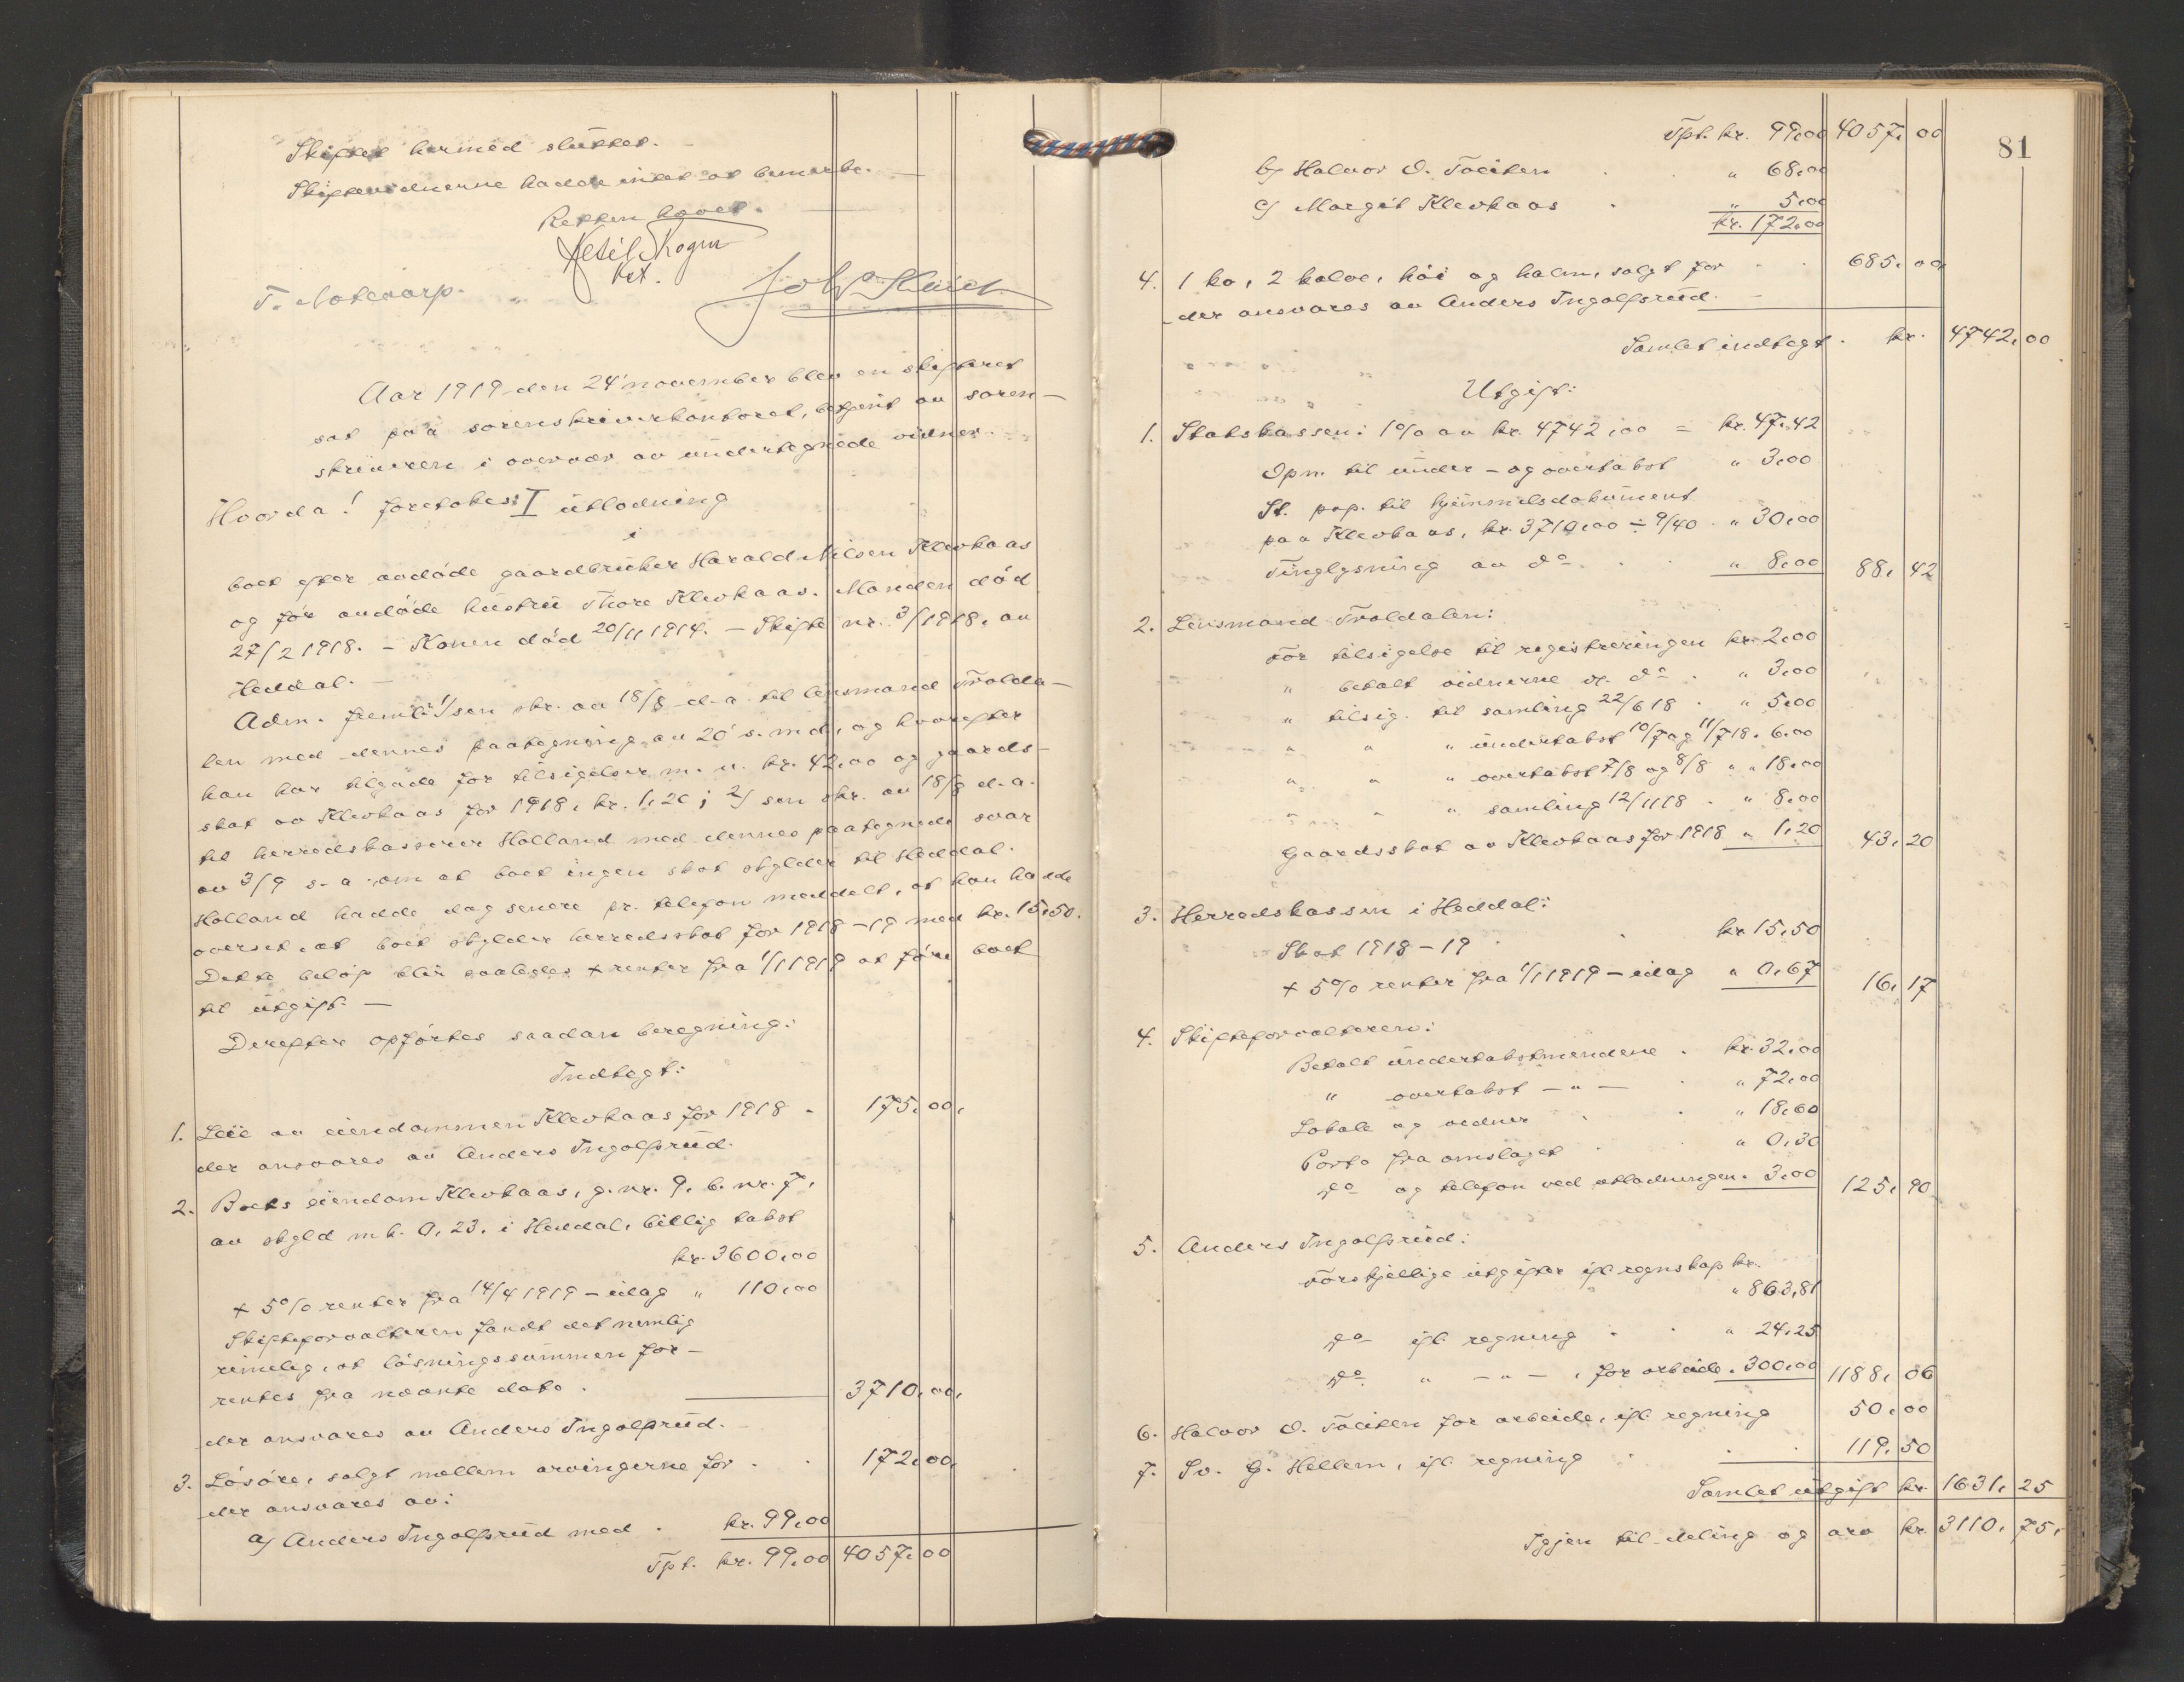 Skiftet hermed sluttet. -
Skiftevidnerne hadde intet at bemerke. -
Retten hævet.
Ketil Skogen
kst.
T. Notevarp.
Aar 1919 den 24 november blev en skifteret
sat paa sorenskriverkontoret, betjent av soren-
skriveren i overvær av undertegnede vidner. -
Hvorda! foretokes: I utlodning
i
boet efter avdøde gaardbruker Harald Nilsen Klevkaas
og før avdøde hustru Thore Klevkaas. Manden død
27/2 1918. - Konen død 20/11 1914. - Skifte nr. 3/1918, av
Heddal. -
Adm. fremla: 1/ sin skr. av 18/8 d.a. til lensmand Trolda-
len med dennes paategning av 20 s. md., og hvorefter
han har tilgode for tilsigelser m. v. kr. 42,00 og gaards-
skat av Klevkaas for 1918, kr. 1,20; 2/ sin skr. av 18/8 d.a.
til herredskasserer Holland med dennes paategnede svar
av 3/9 s.a. om at boet ingen skat skylder til Heddal.
Holland hadde dog senere pr. telefon meddelt, at han hadde
overset, at boet skylder herredsskat for 1918-19 med kr. 15,50.
Dette beløp blir saaledes + renter fra 1/1 1919 at føre boet
til utgift. -
Derefter opførtes saadan beregning:
Indtægt:
1. Leie av eiendommen Klevkaas for 1918 . 175,00,
der ansvares av Anders Ingolfsrud.
2. Boets eiendom Klevkaas, g.nr. 9, b.nr. 7,
av skyld mk. 0,23, i Heddal, billig takst
kr. 3600,00
+ 5% renter fra 14/4 1919 - idag „ 110,00
Skifteforvalteren fandt det nemlig
rimelig, at løsningssummen for-
rentes fra nævnte dato. 3710,00,
der ansvares av Anders Ingolfsrud.
3. Løsøre, solgt mellem arvingerne for . . 172,00,
der ansvares av:
a/ Anders Ingolfsrud med . kr. 99,00
Tpt. kr. 99,00 4057,00
81
Tpt. kr. 99,00 4057,00
b/ Halvor O. Tveiten . . „ 68,00
c/ Margit Klevkaas . „ 5,00
kr. 172,00
4. 1 ko, 2 kalve, høi og halm, solgt for . . 685,00,
der ansvares av Anders Ingolfsrud. -
Samlet indtægt . kr. 4742,00
Utgift:
1. Statskassen: 1% av kr. 4742,00 = kr. 47,42
Opn. til under- og overtakst „ 3,00
St. pap. til hjemmelsdokument
paa Klevkaas, kr. 3710,00 ÷ 9/40 . „ 30,00
Tinglysning av do. . . „ 8,00 88,42
2. Lensmand Troldalen:
For tilsigelse til registreringen kr. 2,00
„ betalt vidnerne v. do . „ 3,00
„ tilsig. til samling 22/6 18 . „ 5,00
„ „ „ undertakst 10/7 og 11/7 18 „ 6,00
„ „ „ overtakst 7/8 og 8/8 „ „ 18,00
„ „ „ samling 12/11 18 . „ 8,00
Gaardsskat av Klevkaas for 1918 „ 1,20 43,20
3. Herredskassen i Heddal:
Skat 1918-19 . . kr. 15,50
+ 5% renter fra 1/1 1919 - idag „ 0,67 16,17
4. Skifteforvalteren:
Betalt undertakstmændene . kr. 32,00
„ overtakst - „ - . „ 72,00
Lokale og vidner . . „ 18,60
Porto fra omslaget . „ 0,30
do og telefon ved utlodningen „ 3,00 125,90
5. Anders Ingolfsrud:
Forskjellige utgifter ifl. regnskap kr.
„ 863,81
do ifl. regning . . „ 24,25
do „ - „ - , for arbeide „ 300,00 1188,06
6. Halvor O. Tveiten for arbeide, ifl. regning 50,00
7. Sv. G. Hellem, ifl. regning . . . 119,50
Samlet utgift kr. 1631,25
Igjen til deling og arv kr. 3110,75,